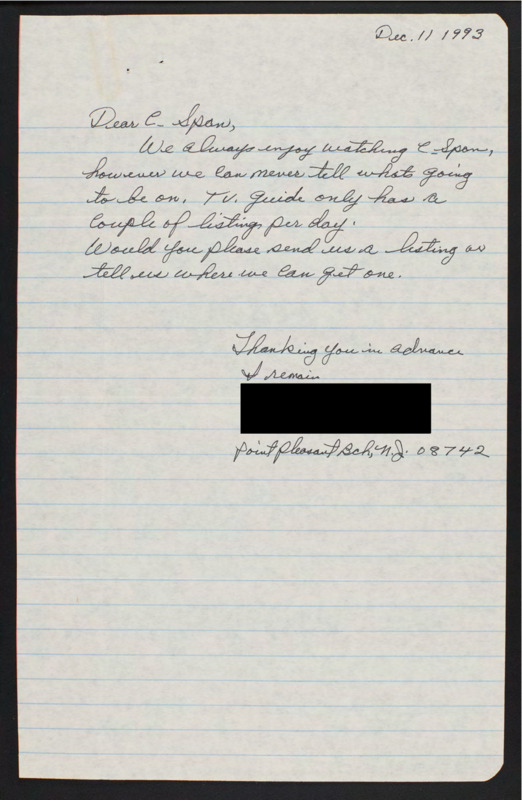 Dec. 11 1993
Dear C- Span,
We always enjoy watching C-Span,
however we can never tell whats going
to be on. TV. Guide only has a
couple of listings per day.
Would you please send us a listing or
tell us where we can get one.
Thanking you in advance
I remain
Point Pleasant Bch, N.J. 08742